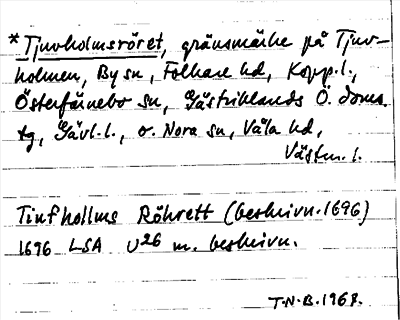 *Tjuvholmsröret, gränsmärke på Tjuv-
holmen, By sn, Folkare hd, Kopp.l.,
Österfärnebo sn, Gästriklands Ö. doms.
tg, Gävl.l., o. Nora sn, Våla hd,
Västm. l.
Tiufhollms Röhrett (beskrivn. 1696)
1696 LSA U26 m. beskrivn.
T.N.B. 1968.